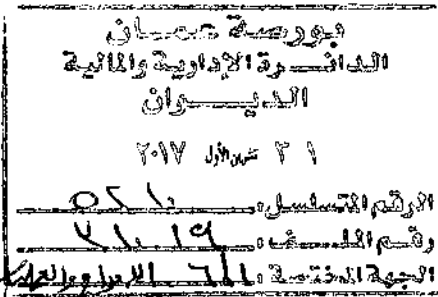 بورصة عمان
الدائرة الإدارية والمالية
الديوان
٣١ تشرين الأول ٢٠١٧
الرقم المتسلسل: ٥٢١٠
رقم الملف:
الجهة المختصة: